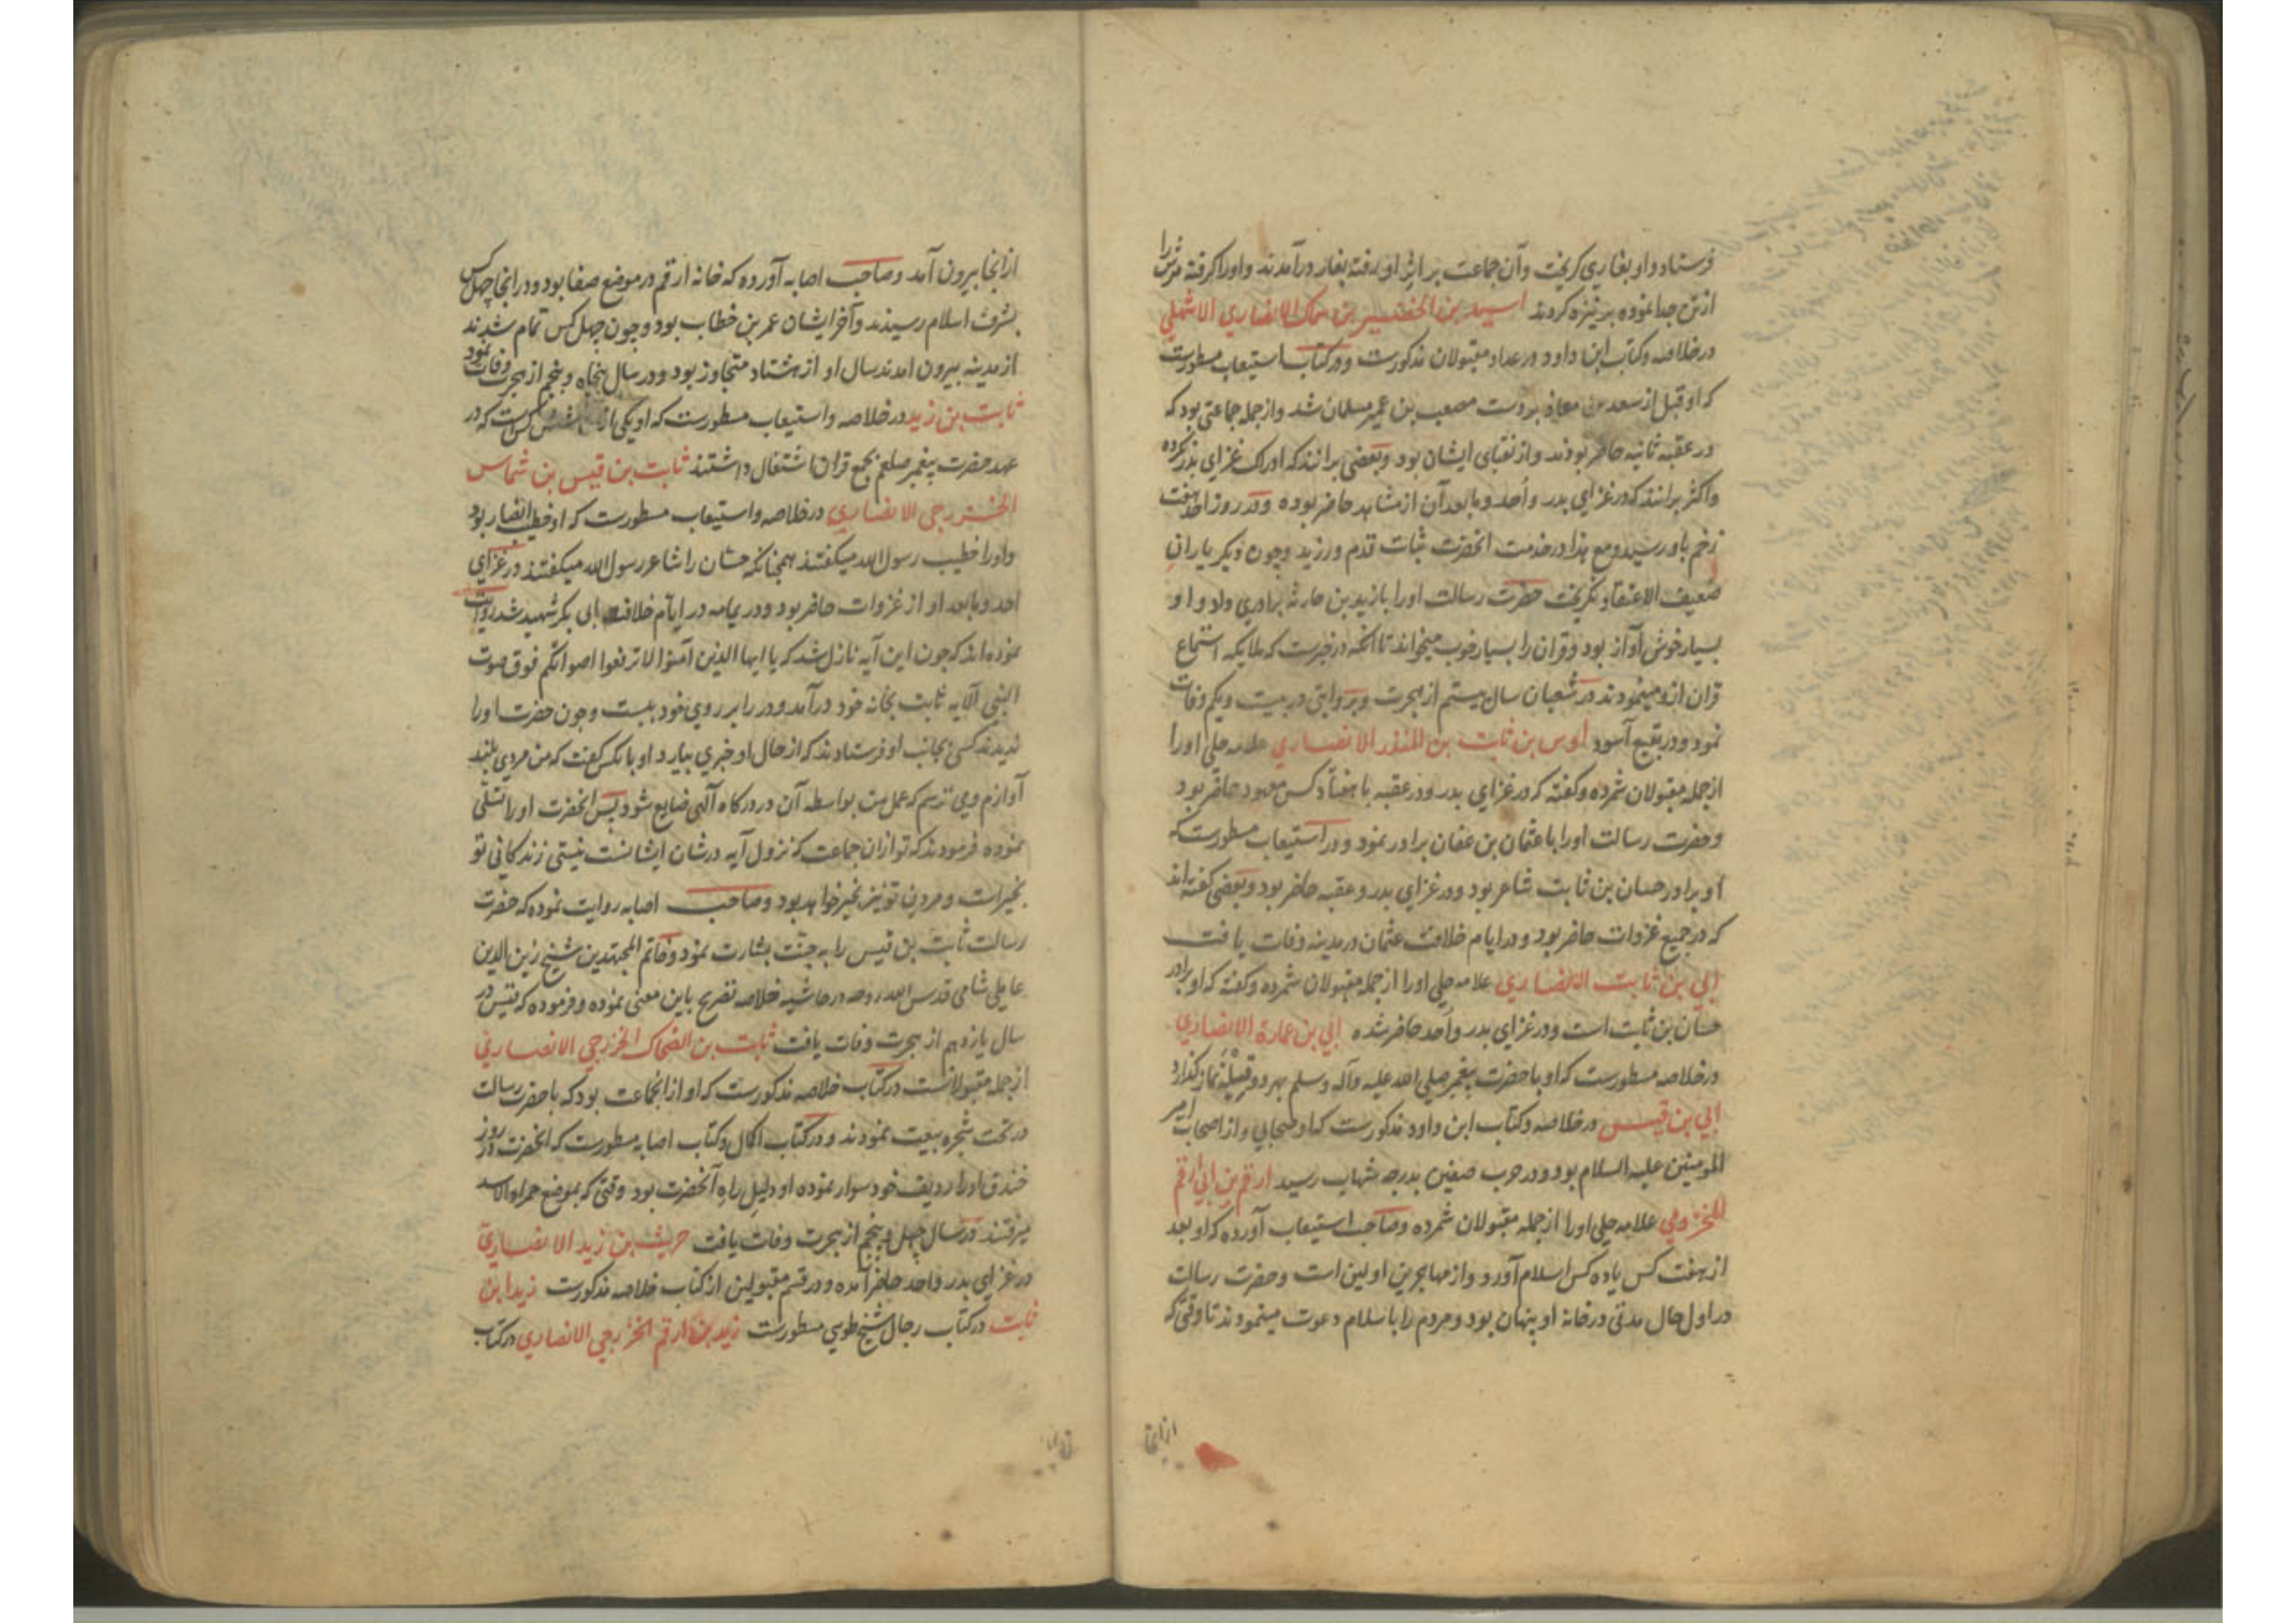 فرستاد و او بغاری کریخت و آن جماعت بر اثر او رفته بغار درآمدند و او را کرفته سرش را
از تن جدا نموده بر نیزه کردند اسید بن الحضیر بن سماک الانصاری الاشهلی
در خلاصه و کتاب ابن داود در عداد مقبولان مذکورست و در کتاب استیعاب مسطورست
که او قبل از سعد بن معاذ بر دست مصعب بن عمیر مسلمان شد و از جمله جماعتی بود که
در عقبه ثانیه حاضر بودند و از نقبای ایشان بود و بعضی برانند که ادراک غزای بدر نکرده
و اکثر برانند که در غزای بدر و اُحد و ما بعد آن از مشاهد حاضر بوده و در روز احد هفت
زخم باو رسید و مع هذا در خدمت انحضرت ثبات قدم ورزید و چون دیکر یاران
ضعیف الاعتقاد نکریخت حضرت رسالت او را با زید بن حارثه برادری داد و او
بسیار خوش آواز بود و قران را بسیار خوب میخواند تا آنکه در خبرست که ملایکه استماع
قران ازو مینمودند در شعبان سال بیستم از هجرت و بروایتی در بیست و یکم وفات
نمود و در بقیع آسود اوس بن ثابت بن المنذر الانصاری علامه حلی او را
از جمله مقبولان شمرده و کفته که در غزای بدر و در عقبه با هفتاد کس معهود حاضر بود
و حضرت رسالت او را با عثمان بن عفان برادر نمود و در استیعاب مسطورست که
او برادر حسان بن ثابت شاعر بود و در غزای بدر و عقبه حاضر بود و بعضی کفته اند
که در جمیع غزوات حاضر بود و در ایام خلافت عثمان در مدینه وفات یافت
ابی بن ثابت الانصاری علامه حلی او را از جمله مقبولان شمرده و کفته که او برادر
حسان بن ثابت است و در غزای بدر و اُحد حاضر شده ابی بن عمارة الانصاری
در خلاصه مسطورست که او با حضرت پیغمبر صلی الله علیه وآله وسلم بهر دو قبیله نماز کذارد
ابی بن قیس در خلاصه و کتاب ابن داود مذکورست که او صحابی و از اصحاب امیر
المومنین علیه السلام بود و در حرب صفین بدرجه شهادت رسید ارقم بن ابی ارقم
المخزومی علامه حلی او را از جمله مقبولان شمرده و صاحب استیعاب آورده که او بعد
از هفت کس یا ده کس اسلام آورد و از مهاجرین اولین است و حضرت رسالت
در اول حال مدتی در خانه او پنهان بود و مردم را با سلام دعوت مینمودند تا وقتی که
از انجا
از انجا بیرون آمد و صاحب اصابه آورده که خانه ارقم در موضع صفا بود و در انجا چهل کس
بشرف اسلام رسیدند و آخر ایشان عمر بن خطاب بود و چون چهل کس تمام شدند
از مدینه بیرون امدند سال او از هشتاد متجاوز بود و در سال پنجاه و پنجم از هجرت وفات نمود
ثابت بن زید در خلاصه و استیعاب مسطورست که او یکی از شش کس است که در
عهد حضرت پیغمبر صلعم بجمع قران اشتغال داشتند ثابت بن قیس بن شماس
الخزرجی الانصاری در خلاصه و استیعاب مسطورست که او خطیب انصار بود
و او را خطیب رسول الله میکفتند همچنانکه حسّان را شاعر رسول الله میکفتند در غزای
احد و ما بعد او از غزوات حاضر بود و در یمامه در ایام خلافت ابی بکر شهید شد روایت
نموده اند که چون این آیه نازل شد که یا ایها الذین آمنوا لا ترفعوا اصواتکم فوق صوت
النبی الآیه ثابت بخانه خود درآمد و در را بر روی خود ببست و چون حضرت او را
ندیدند کسی بجانب او فرستادند که از حال او خبری بیارد او بانکس کفت که من مردی بلند
آوازم و می ترسم که عمل من بواسطه آن در درکاه آلهی ضایع شود پس انحضرت او را تسلی
نموده فرمودند که تو ازان جماعت که نزول آیه در شان ایشانست نیستی زندکانی تو
بخیرات و مردن تو نیز بخیر خواهد بود و صاحب اصابه روایت نموده که حضرت
رسالت ثابت بن قیس را به جنّت بشارت نمود و خاتم المجتهدین شیخ زین الدین
عاملی شامی قدس الله روحه در حاشیه خلاصه تصریح باین معنی نموده و فرموده که قیس در
سال یازدهم از هجرت وفات یافت ثابت بن الضحاک الخزرجی الانصاری
از جمله مقبولانست در کتاب خلاصه مذکورست که او از انجماعت بود که با حضرت رسالت
در تحت شجره بیعت نمودند و در کتاب اکمال و کتاب اصابه مسطورست که انحضرت در روز
خندق او را ردیف خود سوار نموده او دلیل راه آنحضرت بود وقتی که بموضع حمراء الاسد
میرفتند در سال چهل و پنجم از هجرت وفات یافت حریث بن زید الانصاری
در غزای بدر و احد حاضر آمده و در قسم مقبولین از کتاب خلاصه مذکورست زید ابن
ثابت در کتاب رجال شیخ طوسی مسطورست زید بن ارقم الخزرجی الانصاری در کتاب